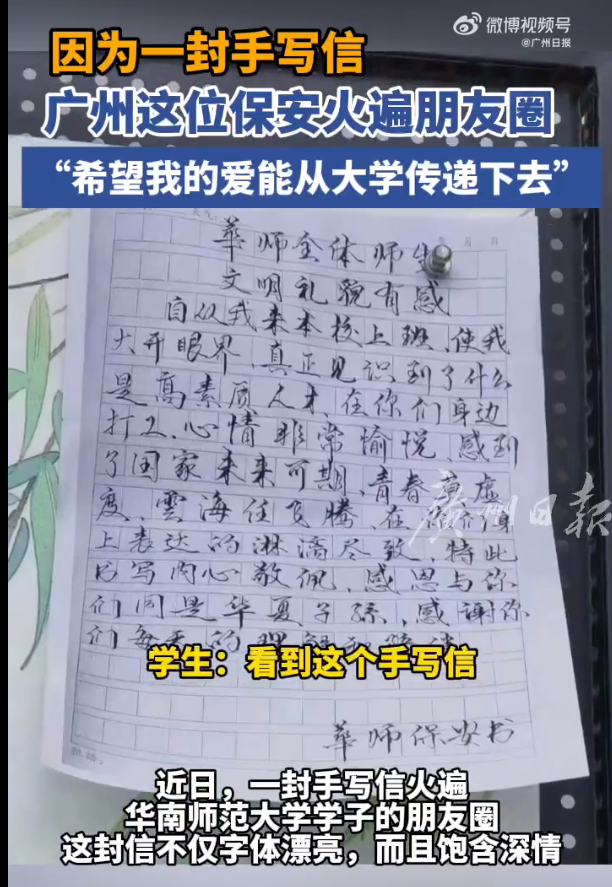 微博视频号
@广州日报
因为一封手写信
广州这位保安火遍朋友圈
“希望我的爱能从大学传递下去”
月 日
華师全体师生
文明礼貌有感
自从我来本校上班、使我
大开眼界、真正见识到了什么
是高素质人才、在你们身边
打工、心情非常愉悦、感到
了国家未来可期、青春莫虚
度、雲海任飞腾、在你们身
上表达的淋漓尽致、特此
书写内心敬佩、感恩与你
们同是华夏子孫、感谢你
们每天的理解和
廣州日报
学生：看到这个手写信
華师保安书
近日，一封手写信火遍
华南师范大学学子的朋友圈
这封信不仅字体漂亮，而且饱含深情